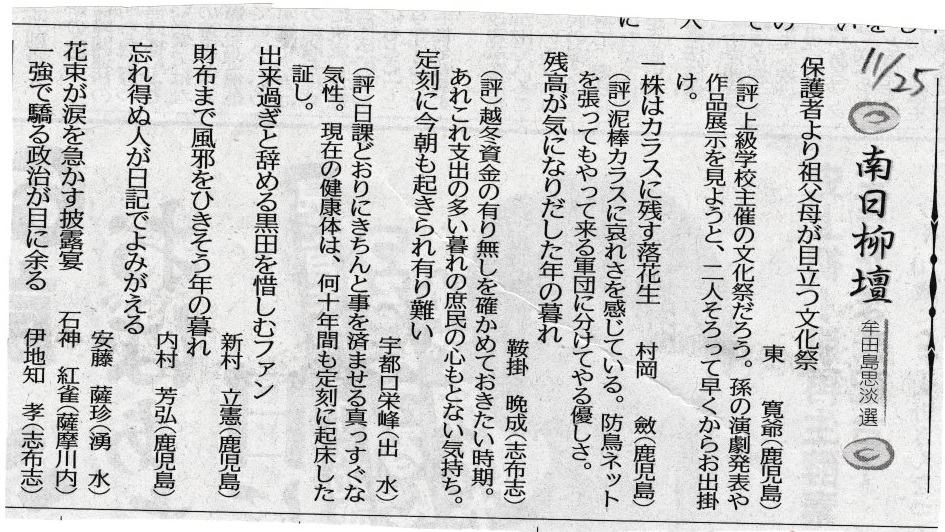 11/25
南日柳壇
牟田島思淡 選
保護者より祖父母が目立つ文化祭
東 寛爺(鹿児島)
(評)上級学校主催の文化祭だろう。孫の演劇発表や
作品展示を見ようと、二人そろって早くからお出掛
け。
一株はカラスに残す落花生 村岡 斂(鹿児島)
(評)泥棒カラスに哀れさを感じている。防鳥ネット
を張ってもやって来る軍団に分けてやる優しさ。
残高が気になりだした年の暮れ
鞍掛 晩成(志布志)
(評)越冬資金の有り無しを確かめておきたい時期。
あれこれ支出の多い暮れの庶民の心もとない気持ち。
定刻に今朝も起きられ有り難い
宇都口栄峰(出 水)
(評)日課どおりにきちんと事を済ませる真っすぐな
気性。現在の健康体は、何十年間も定刻に起床した
証し。
出来過ぎと辞める黒田を惜しむファン
新村 立憲(鹿児島)
財布まで風邪をひきそう年の暮れ
内村 芳弘(鹿児島)
忘れ得ぬ人が日記でよみがえる
安藤 薩珍(湧 水)
花束が涙を急かす披露宴 石神 紅雀(薩摩川内)
一強で驕る政治が目に余る 伊地知 孝(志布志)